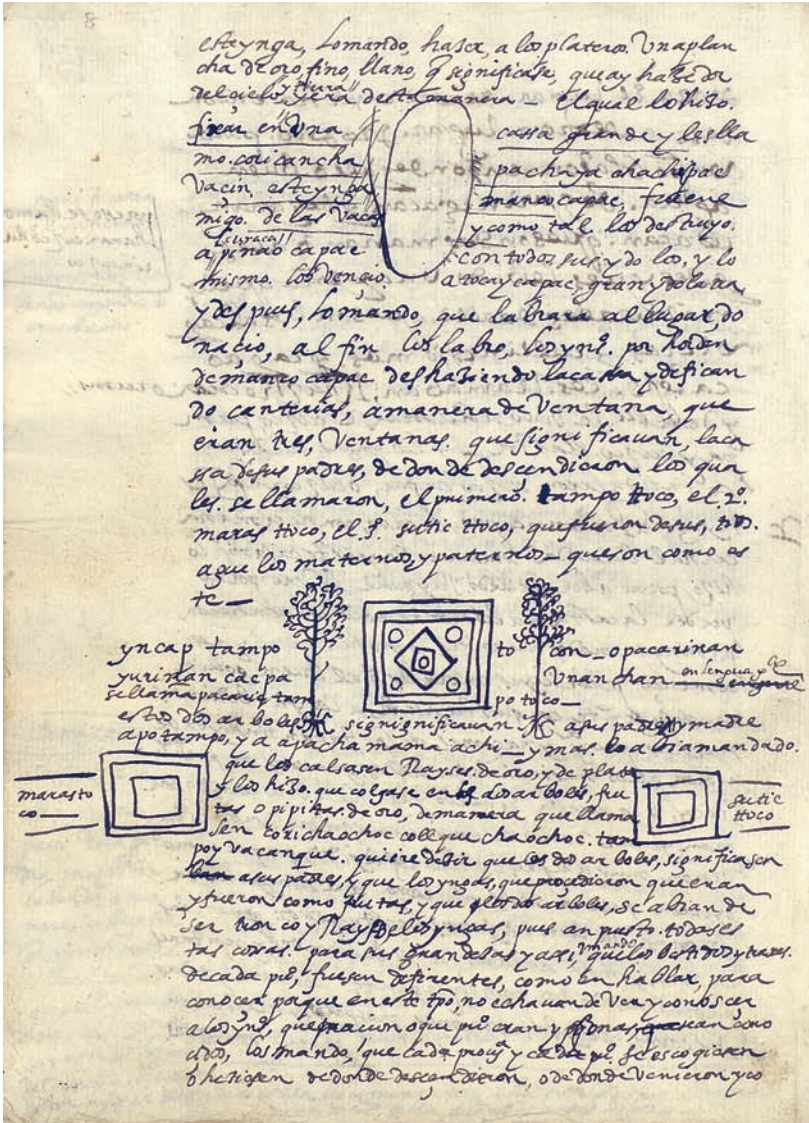 8
este ynga, lo mando, haser, a los plateros. Una plan
cha de oro, fino, llano, q̃ significase, que ay hazedor
del cielo y tierra y era desta manera _ El qual lo hizo.
fixar en Una cassa grande y les lla
mo. coricancha pachayachachipac
Vacin. este ynga manco capac, fue ene
migo. de las Vacas y como tal los destruyo.
(curacas)
a pinao capac con todos sus ydolos, y lo
mismo. los vencio. a tocay capac, gran ydolatra
y despues, lo mando, que labrara al lugar, do
nacio, al fin los labro, los ynos. por horden
de manco capac deshaziendo la casa y edifican
do canterias, a manera de Ventana, que
eran tres, Ventanas. que significauan, la ca
ssa de sus padres, de donde descendieron los qua
les. se llamaron, el primero. tampo ttoco, el 2º.
maras ttoco, el 3. sutic ttoco, que fueron de sus, tios.
aguelos maternos y paternos _ que son como es
te _
yncap tampo to con _ o pacarinan
yurinan cacpa Unanchan en lengua
se llama pacaric tam po toco _
estos dos arboles signignificauan a sus padres y madre
apotampo, y a apachamama achi _ y mas. lo abia mandado.
que los calsasen Rayses. de oro, y de plata
y los hizo. que colgase en los dos arboles, fru
maras to
co _
tas o pipitas de oro, de manera que llama
sutic
ttoco
sen corichaochoc collquechaochoc. tam
poy Vacanque. quiere desir que los dos arboles, significasen
a sus padres, y que los yngas, que procedieron que eran
y fueron como frutas, y que los dos arboles, se abian de
ser tronco y Rayz de los yngas, pues en puesto. todas es
tas cosas. para sus grandesas y assi, mando que los bestidos y traxes.
de cada pueº, fuesen diferentes, como en hablar, para
conocer porque en este tpõ, no echauan de Ver y conoscer
a los ynº, que nacion o que pueº eran y cono
cidos, los mando, que cada prouiª y cada pueº. se escogiesen
o hiziesen de donde descendieron, o de donde Venieron y co